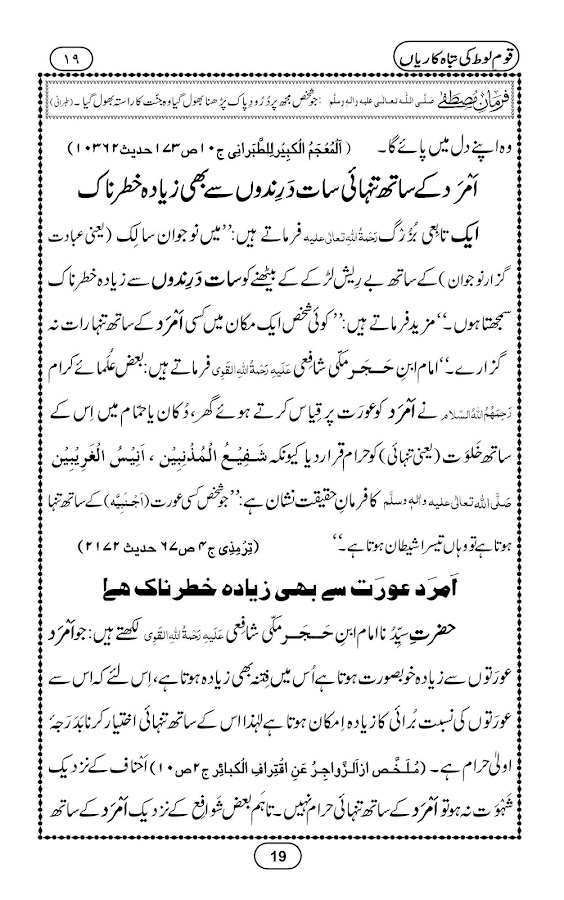 قومِ لوط کی تباہ کاریاں
١٩
فرمانِ مصطفےٰ صلَّی اللہ تعالیٰ علیہ والہٖ وسلَّم : جو شخص مجھ پر دُرُودِ پاک پڑھنا بھول گیا وہ جنّت کا راستہ بھول گیا ۔ (طبرانی)
وہ اپنے دل میں پائے گا۔ (اَلْمُعْجَمُ الْکَبِیْر لِلطَّبَرانی ج۱۰ ص۱۷۳ حدیث ۱۰۳۶۲)
اَمْرَد کے ساتھ تنہائی سات دَرِندوں سے بھی زیادہ خطرناک
ایک تابِعی بُزُرگ رَحْمَۃُ اللہِ تعالٰی علیہ فرماتے ہیں: ’’میں نوجوان سالِک (یعنی عبادت
گزار نوجوان ) کے ساتھ بے رِیش لڑکے کے بیٹھنے کو سات دَرِندوں سے زیادہ خطرناک
سمجھتا ہوں۔‘‘ مزید فرماتے ہیں: ’’کوئی شخص ایک مکان میں کسی اَمْرَد کے ساتھ تنہا رات نہ
گزارے۔‘‘ امام ابنِ حَجَر مکّی شافِعی عَلَیْہِ رَحْمَۃُ اللہِ القَوِی فرماتے ہیں: بعض عُلَمائے کرام
رَحِمَہُمُ اللہُ السَّلام نے اَمْرَد کو عورت پر قِیاس کرتے ہوئے گھر، دُکان یا حمّام میں اِس کے
ساتھ خَلْوَت (یعنی تنہائی) کو حرام قرار دیا کیونکہ شَفِیْعُ الْمُذْنِبِیْن ، اَنِیْسُ الْغَرِیْبِیْن
صَلَّی اللہ تعالٰی علیہ والہٖ وسلَّم کا فرمانِ حقیقت نشان ہے: ’’جو شخص کسی عورت (اَجْنَبِیَّہ) کے ساتھ تنہا
ہوتا ہے تو وہاں تیسرا شیطان ہوتا ہے۔‘‘ (تِرْمِذِی ج۴ ص۶۷ حدیث ۲۱۷۲)
اَمرَد عورَت سے بھی زیادہ خطر ناک ھے!
حضرتِ سیِّدُنا امام ابنِ حَجَر مکّی شافِعی عَلَیْہِ رَحْمَۃُ اللہِ القَوِی لکھتے ہیں: جو اَمْرَد
عورَتوں سے زیادہ خوبصورت ہوتا ہے اُس میں فِتنہ بھی زیادہ ہوتا ہے، اِس لئے کہ اس سے
عورَتوں کی نسبت بُرائی کا زیادہ اِمکان ہوتا ہے لہٰذا اس کے ساتھ تنہائی اختیار کرنا بَدَرَجۂ
اولیٰ حرام ہے۔ (مُلَخَّص از اَلزَّواجِرُ عَنِ اقْتِرافِ الْکَبائِر ج۲ ص۱۰) اَحْناف کے نزدیک
شَہْوَت نہ ہو تو اَمْرَد کے ساتھ تنہائی حرام نہیں۔ تاہَم بعض شَوافِع کے نزدیک اَمْرَد کے ساتھ
19